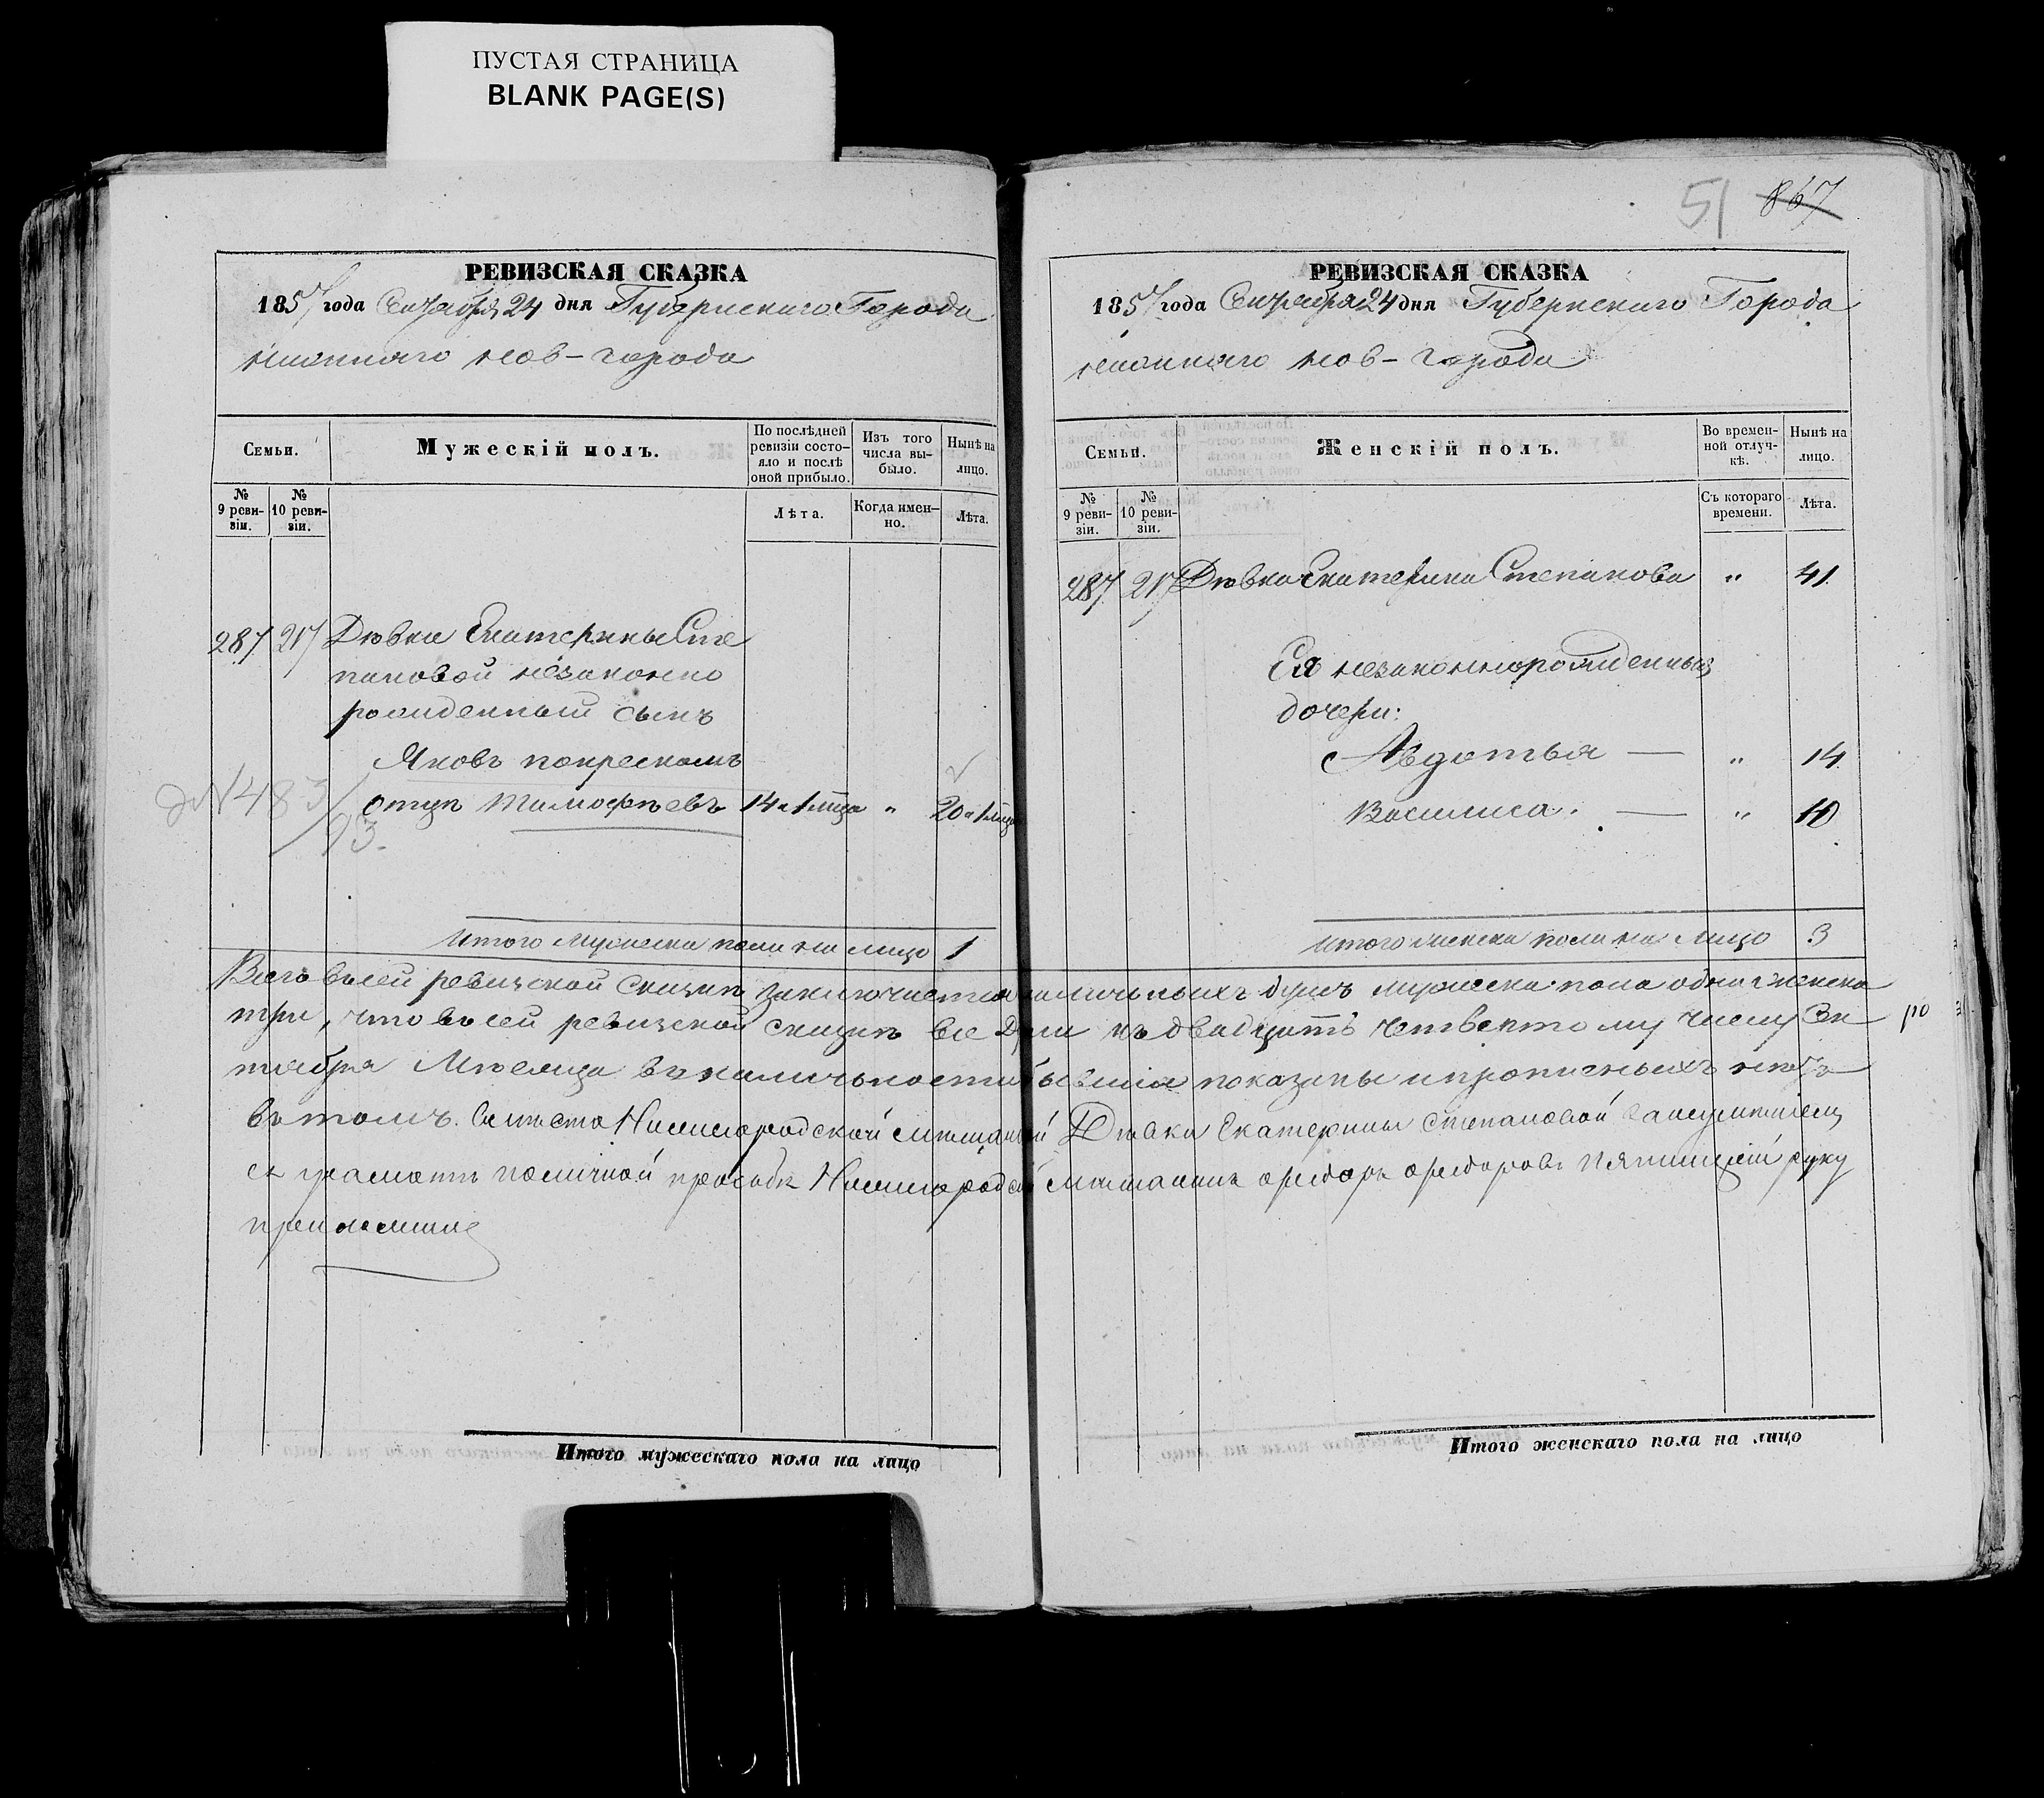 ПУСТАЯ СТРАНИЦА
BLANK PAGE(S)
РЕВИЗСКАЯ СКАЗКА
1857 года Сентября 24 дня Губернскаго Города
нижняго нов-города
Семьи.
Мужескій полъ.
По послѣдней ревизіи состояло и послѣ оной прибыло.
Изъ того числа выбыло.
Нынѣ на лицо.
№ 9 ревизіи.
№ 10 ревизіи.
Лѣта.
Когда именно.
Лѣта.
287 217 Дѣвки Екатерины Сте
пановой незаконно
рожденный сынъ
Яковъ покресномъ
отцу Тимофѣевъ 14 и 1 мца " 20 и 1 мца
№ 483/93.
Итого мужеска пола на лицо 1
51 867
РЕВИЗСКАЯ СКАЗКА
1857 года Сентября 24 дня Губернскаго Города
нижняго нов-города
Семьи.
Женскій полъ.
Во временной отлучкѣ.
Нынѣ на лицо.
№ 9 ревизіи.
№ 10 ревизіи.
Съ котораго времени.
Лѣта.
287 217 Дѣвка Екатерина Степанова " 41
Ея незаконнорожденныя
дочери:
Авдотья — " 14
Василиса. — " 10
Итого женска пола на лицо 3
Всего въ сей ревизской сказкѣ заключается наличныхъ душъ мужеска пола одна и женска
три, что въ сей ревизской сказкѣ все души къ двадцать четвертому числу Сен
тября Мѣсяца въ наличьности бывшія показаны и прописныхъ нѣтъ
въ томъ. Вместо Нижегородской мѣщанки Дѣвки Екатерины Степановой
грамоте по личной прозьбе Нижегородской мѣщанинъ Федоръ Федоровъ руку
приложилъ
Итого мужескаго пола на лицо
Итого женскаго пола на лицо